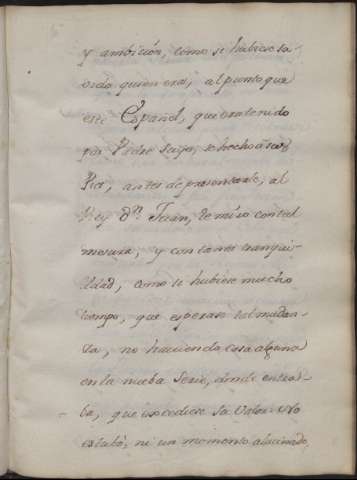 y ambición, como si hubiese sa
vido quien era, al punto que
este Español, que era tenido
por Padre suyo, se hecho à sus
Pies, antes de presentarle, al
Rey Dn. Juan, le miro con tal
mesura, y con tanta tranqui-
lidad, como si hubiese mucho
tiempo, que esperase tal mudan-
za, no haciendo cosa alguna
en la nueba Serie, donde entra-
ba, que excediese su Valor. No
estubo, ni un momento alucinado,